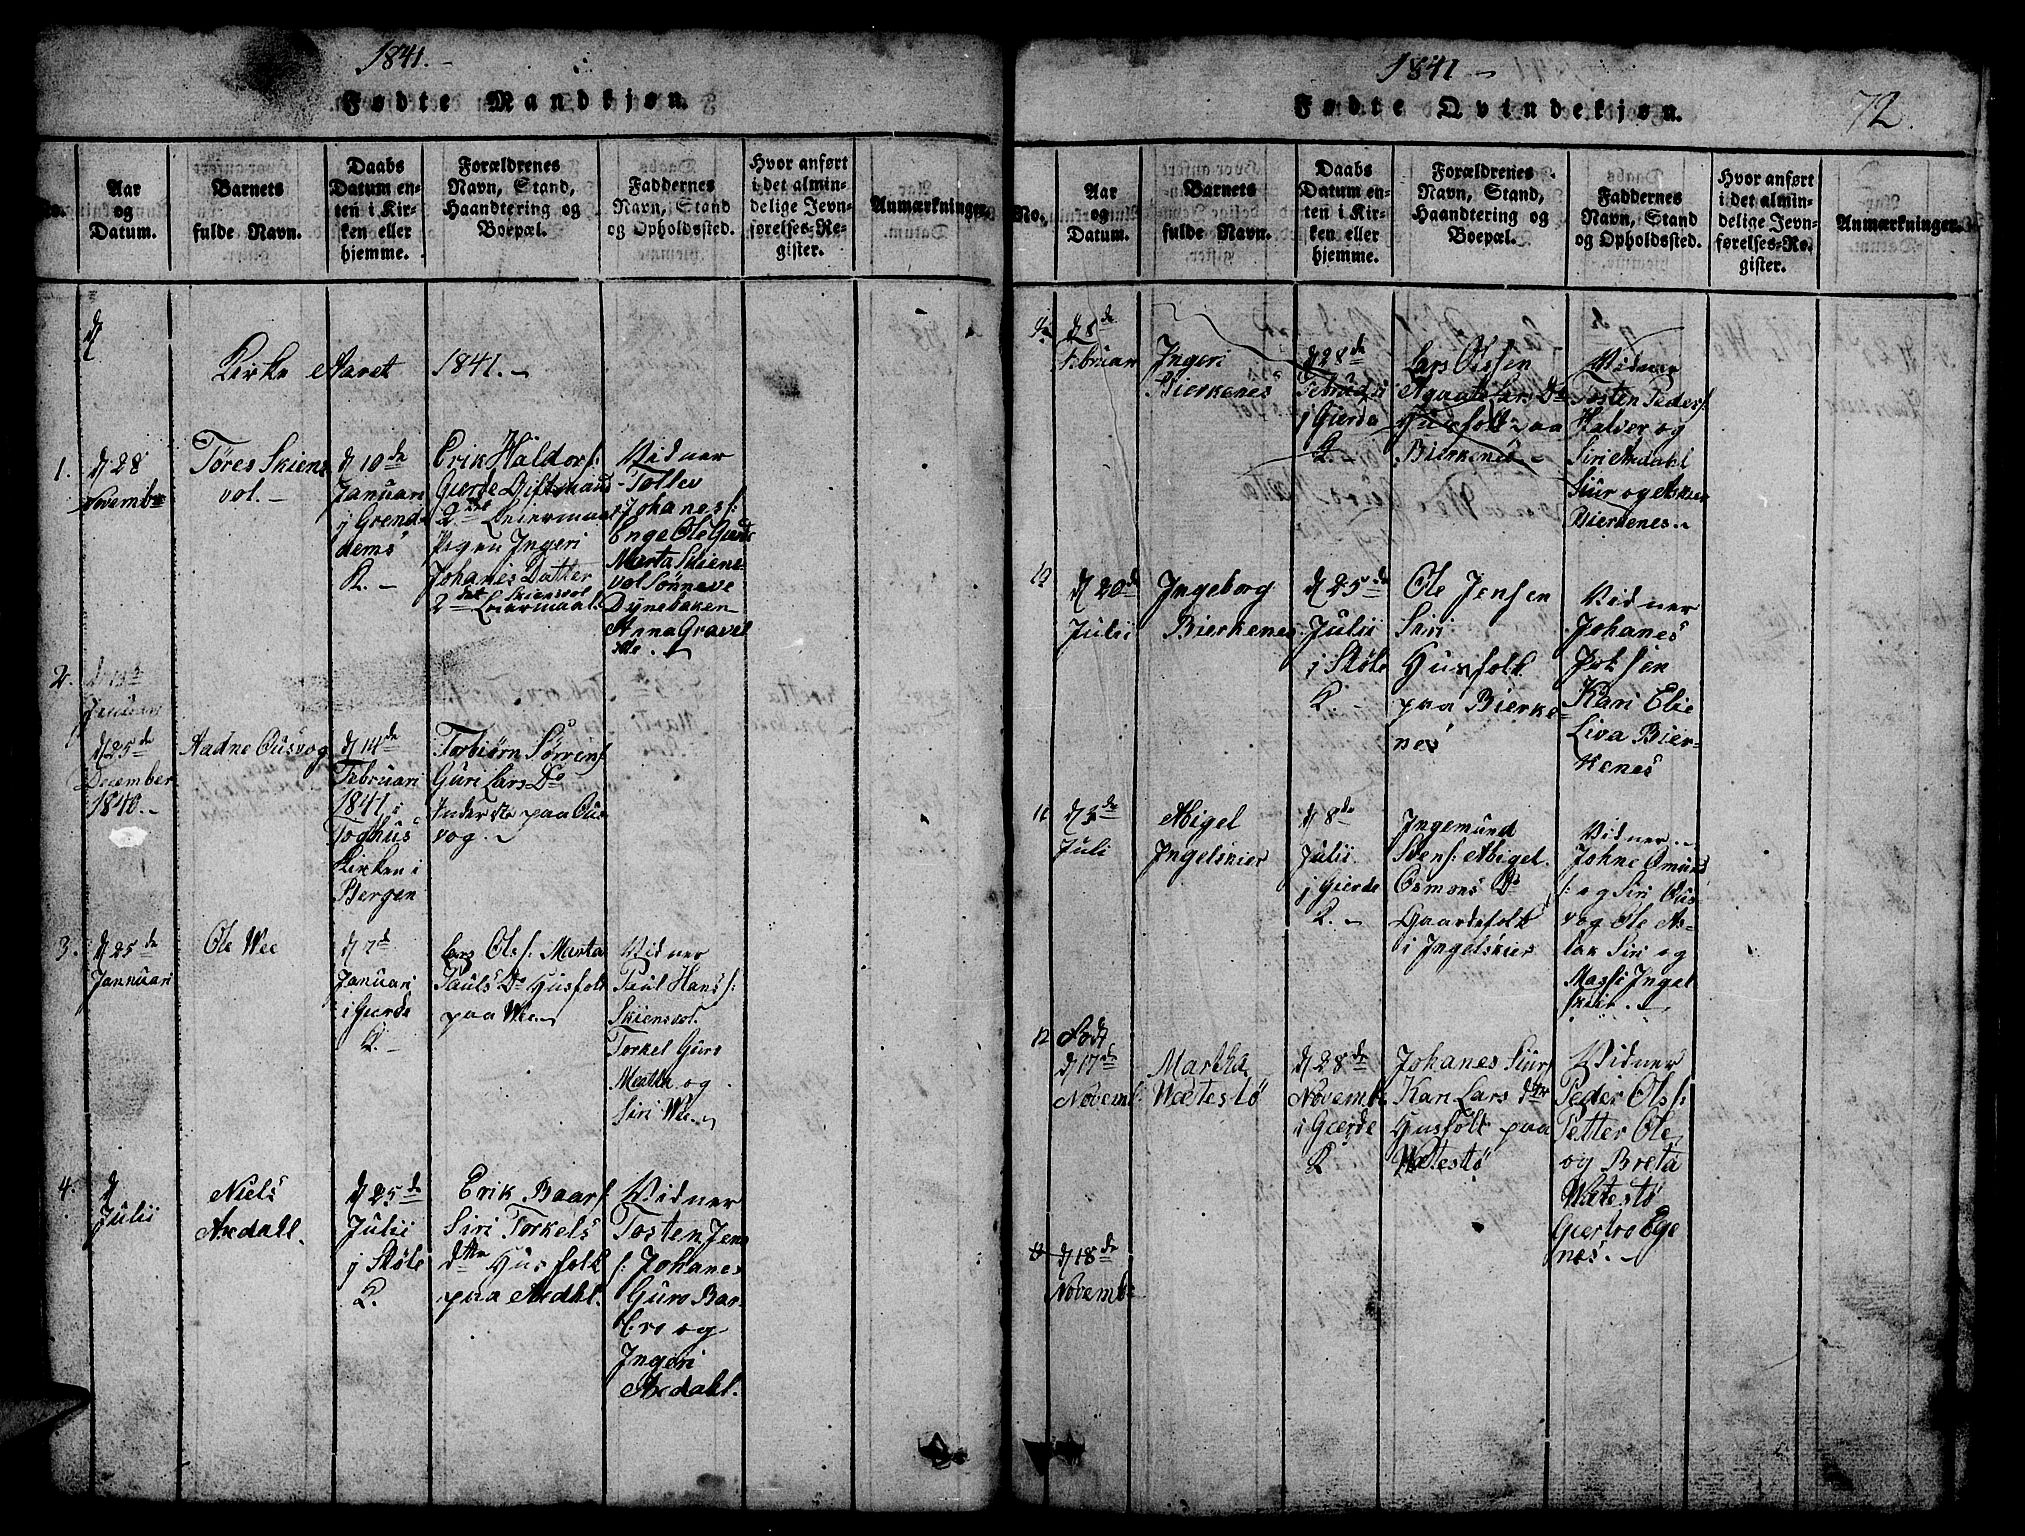 1841.
Fødte Mandkjøn.
No.
Aar
og
Datum.
Barnets
fulde Navn.
Daabs
Datum en-
ten i Kir-
ken eller
hjemme.
Forældrenes
Navn, Stand,
Haandtering og
Boepæl.
Faddernes
Navn, Stand
og Opholdssted.
Hvor anført
i det almin-
delige Jevn-
førelses-Re-
gister.
Anmærkninger.
Kirke Aaret 1841.
1.
d 28
Novembr
Tøres Skiens
vol.
d 10de
Januari
j Grend
K.
Erik Haldors:
Gierde Giftmand
2
Pigen Ingeri
Johanis Datter
Skiensvol
2det Leiermaal.
Vidner
Tollev
Johanes:
Inge Ole Gierde
Marta Skiens
vol Sønneve
Dynebaken
Anna Gravel
2.
Januari
d 25de
December
1840.
Aadne Ousvog
d 14de
Februari
1841 i
Toghus
Kirken i
Bergen
Torbiørn Sørrens
Guri Lars Do
paa Ous
vog.
3.
d 25de
Januari
Ole Wee
d 7d
Januari
i Gierde
K.
Lars Ols: Marta
Pauls Do Husfolk
paa Wee.
Vidner
Paul Hans:
Skiensvol.
Torkel Guro
Martha og
Siri Wee.
4.
d
Julii
Niels
Axdahl.
d 25de
Julii
j Skøle
K.
Erik Baars:
Siri Torkels
dttr Husfolk
paa Axdahl.
Vidner
Tosten Jens
s: Johanes
Guro Bar-
bro og
Ingeri
Axdahl.
1841
Fødte Qvindekjøn.
72.
No.
Aar
og
Datum.
Barnets
fulde Navn.
Daabs
Datum en-
ten i Kir-
ken eller
hjemme.
Forældrenes
Navn, Stand,
Haandtering og
Boepæl.
Faddernes
Navn, Stand
og Opholdssted.
Hvor anført
i det almin-
delige Jevn-
førelses-Re-
gister.
Anmærkninger.
9.
d 5de
Februar
Ingeri
Bierkenes
d 28de
Februari
j Gierde
K.
Lars Olssen
Agaata Lars Do
Husfolk paa
Bierkenes
Vidner
Tosten Peders:
Halver og
Siri Axdahl
Siur og
Bierkenes.
10
d 20de
Julii
Ingeborg
Bierkenes
d 25de
Julii
i Skøle
K.
Ole Jensen
Siri
Husfolk
paa Bierke
nes
Vidner
Johanes
Jokssen
Kari Elie
Liva Bier-
kenes
11
d 3de
Juli
Abigel
Ingelskier
d 8de
Julii
j Gierde
K.
Ingemund
Stens: Abigel
Osmons Do
Gaardsfolk
i Ingelskier
Vidner
Johne Omuns
s: og Siri Ous
vog Ole As-
lak Siri og
Massi Ingel
skier.
12
Født
d 17de
Novemb.
Martha
Wætestø
d 28de
Novemb.
i Gierde
K
Johanes Siurs
Kari Lars dttr
Husfolk paa
Wætestø
Vidner
Peder Ols:
Petter Ole
og Breta
Wætestø
Giertro Ege
nes.
d 18de
Novembr